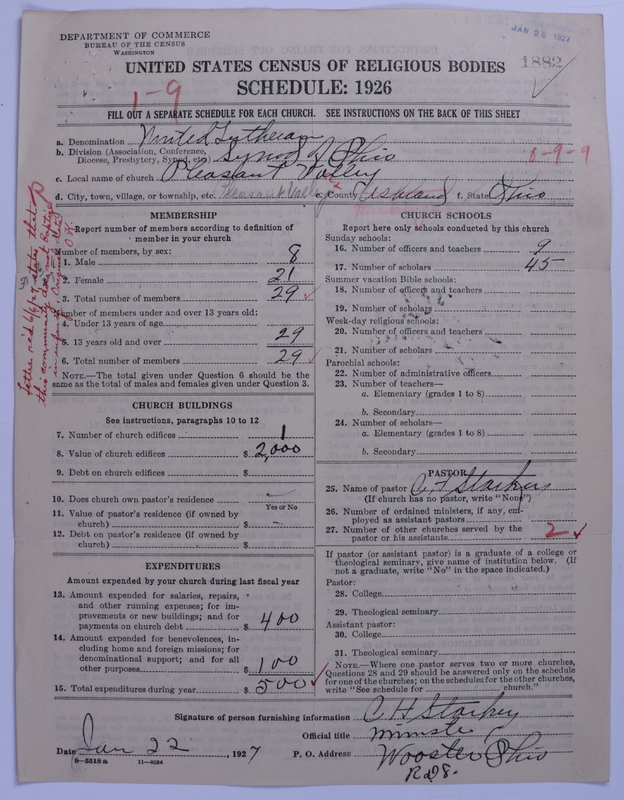 DEPARTMENT OF COMMERCE
BUREAU OF THE CENSUS
WASHINGTON
JAN 28 1927
1882
UNITED STATES CENSUS OF RELIGIOUS BODIES
SCHEDULE: 1926
1-9
FILL OUT A SEPARATE SCHEDULE FOR EACH CHURCH. SEE INSTRUCTIONS ON THE BACK OF THIS SHEET
a. Denomination United Lutheran
b. Division (Association, Conference, Diocese, Presbytery, Synod, etc.) Synod of Ohio
8-9-9
c. Local name of church Pleasant Valley
d. City, town, village, or township, etc. Pleasant Valley e. County Ashland f. State Ohio
MEMBERSHIP
Report number of members according to definition of
member in your church
Number of members, by sex:
1. Male 8
2. Female 21
3. Total number of members 29
Number of members under and over 13 years old:
4. Under 13 years of age
5. 13 years old and over 29
6. Total number of members 29
NOTE.—The total given under Question 6 should be the
same as the total of males and females given under Question 3.
CHURCH BUILDINGS
See instructions, paragraphs 10 to 12
7. Number of church edifices 1
8. Value of church edifices $ 2,000
9. Debt on church edifices $
10. Does church own pastor's residence
Yes or No
11. Value of pastor's residence (if owned by
church) $
12. Debt on pastor's residence (if owned by
church) $
EXPENDITURES
Amount expended by your church during last fiscal year
13. Amount expended for salaries, repairs,
and other running expenses; for im-
provements or new buildings; and for
payments on church debt $ 400
14. Amount expended for benevolences, in-
cluding home and foreign missions; for
denominational support; and for all
other purposes $ 100
15. Total expenditures during year $ 500
CHURCH SCHOOLS
Report here only schools conducted by this church
Sunday schools:
16. Number of officers and teachers 9
17. Number of scholars 45
Summer vacation Bible schools:
18. Number of officers and teachers
19. Number of scholars
Week-day religious schools:
20. Number of officers and teachers
21. Number of scholars
Parochial schools:
22. Number of administrative officers
23. Number of teachers—
a. Elementary (grades 1 to 8)
b. Secondary
24. Number of scholars—
a. Elementary (grades 1 to 8)
b. Secondary
PASTOR
25. Name of pastor
(If church has no pastor, write "None")
26. Number of ordained ministers, if any, em-
ployed as assistant pastors
27. Number of other churches served by the
pastor or his assistants 2
If pastor (or assistant pastor) is a graduate of a college or
theological seminary, give name of institution below. (If
not a graduate, write "No" in the space indicated.)
Pastor:
28. College
29. Theological seminary
Assistant pastor:
30. College
31. Theological seminary
NOTE.—Where one pastor serves two or more churches,
Questions 28 and 29 should be answered only on the schedule
for one of the churches; on the schedules for the other churches,
write "See schedule for church."
Signature of person furnishing information C H Starkey
Official title Minister
Date Jan 22, 1927 P. O. Address Wooster Ohio
R D 8.
8-5518 a 11-9054